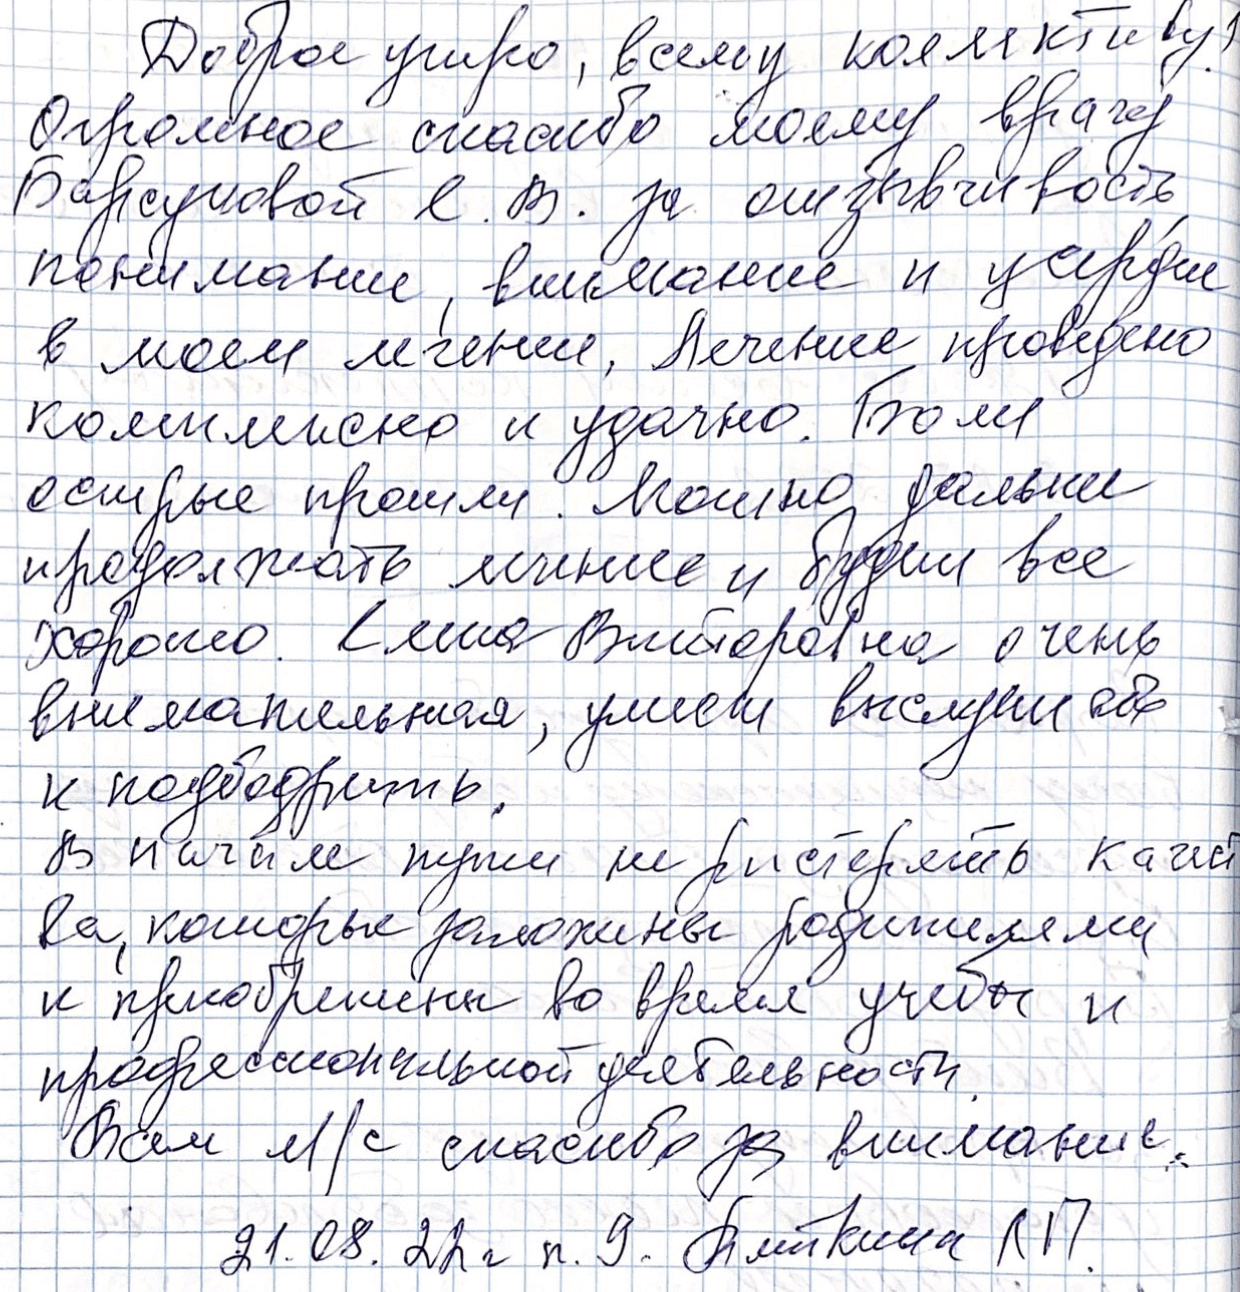 Доброе утро, всему коллективу!
Огромное спасибо моему врачу
Барсуковой Е. В. за отзывчивость
понимание, внимание и усердие
в моем лечении, Лечение проведено
комплексно и удачно. Боли
острые прошли. Можно дальше
продолжать лечение и будет все
хорошо. Елена Викторовна очень
внимательная, умеет выслушать
и подбодрить.
В начале пути не растерять качест
ва, которые заложены родителями
и приобретены во время учебы и
профессиональной деятельности.
Всем м/с спасибо за внимание.
21.08.22г п. 9. Л.П.